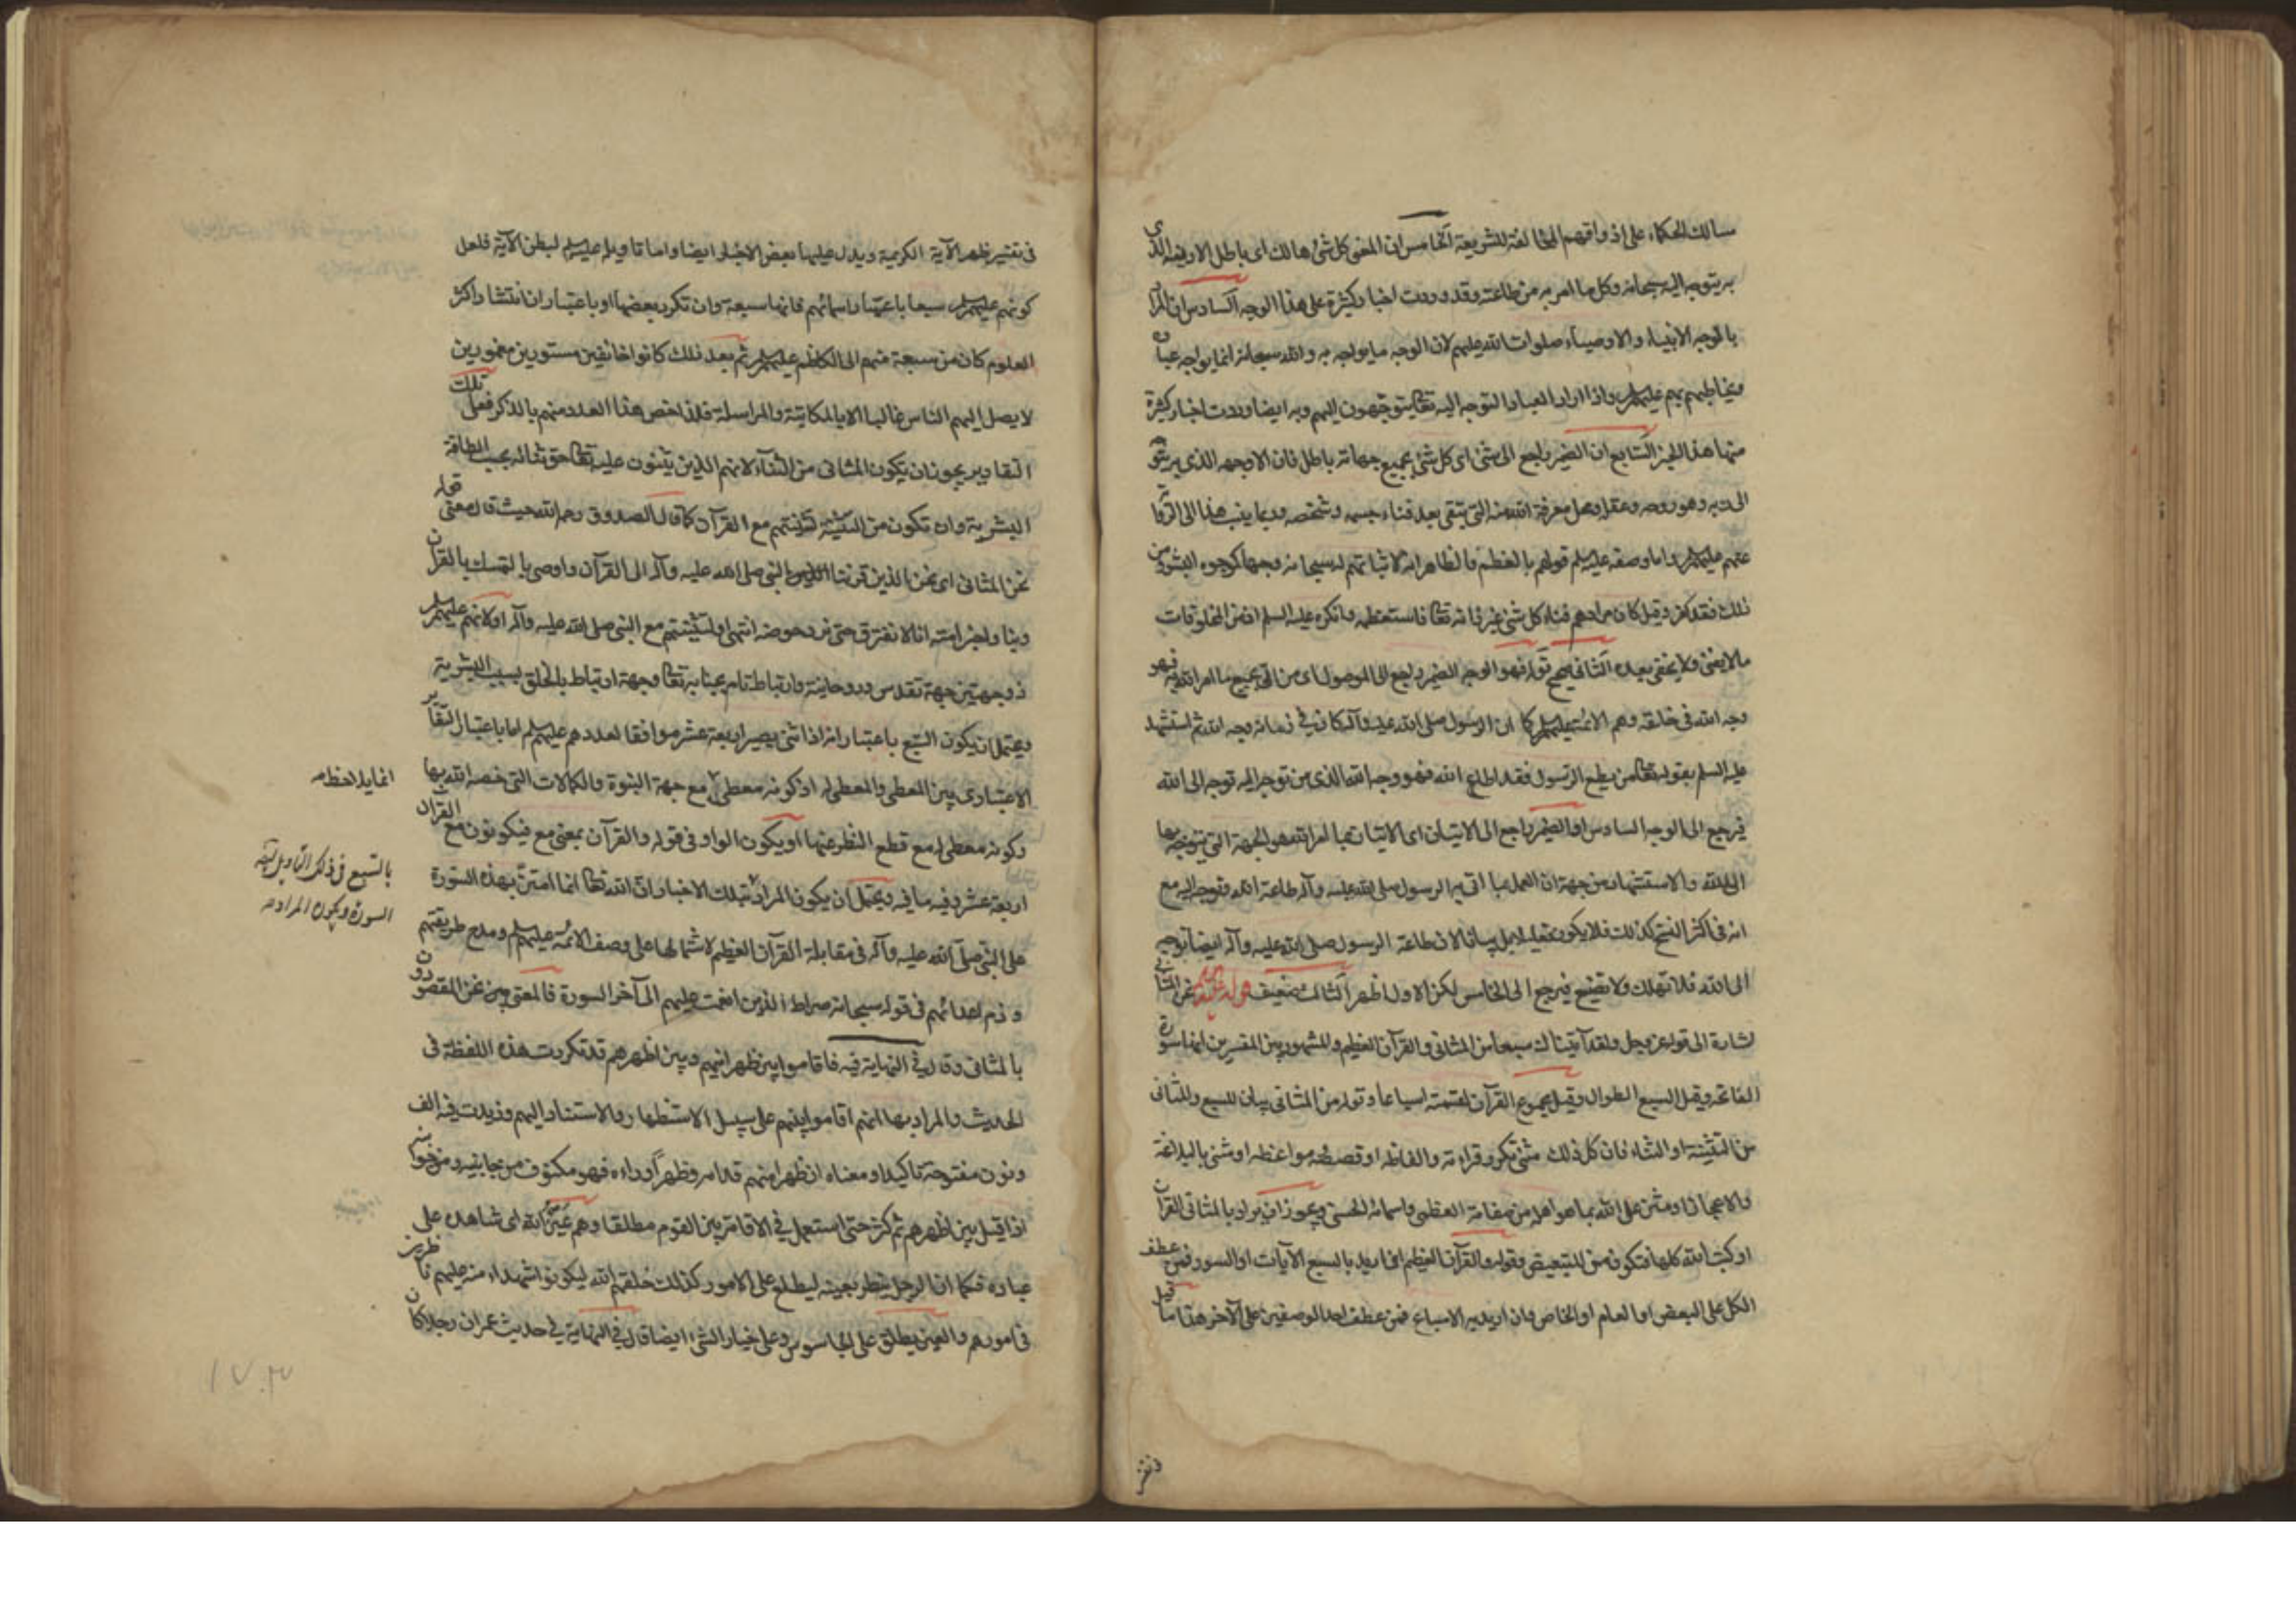 مسالك الحكماء على اذواقهم المخالفة للشريعة الخامس ان المعنى كل شئ هالك اى باطل الا دينه الذى
به يتوجه اليه سبحانه وكل ما امر به من طاعته وقد وردت اخبار كثيرة على هذا الوجه السادس ان المراد
بالوجه الانبياء والاوصياء صلوات الله عليهم لان الوجه ما يواجه به والله سبحانه انما يواجه عباده
ويخاطبهم بهم عليهم السلم واذا اراد العباد التوجه اليه تعالى يتوجهون اليهم وبه ايضا وردت اخبار كثيرة
منها هذا الخبر السابع ان الضمير راجع الى شئ اى كل شئ بجميع جهاته باطل فان الا وجهه الذى به يتوجه
الى ربه وهو روحه وعقله ومحل معرفة الله منه التى تبقى بعد فناء جسمه وشخصه وربما ينسب هذا الى الرواية
عنهم عليهم السلم واما وصفه عليه السلم قولهم بالعظم فالظاهر انه لاثباتهم له سبحانه وجها كوجوه البشر ومن قال
ذلك فقد كفر وقيل كان مرادهم فناء كل شئ غير ذاته تعالى فاستعظمه وانكره عليه السلم اذ من المخلوقات
ما لا يفنى ولا يخفى بعده الثانى صحيح قوله فهو الوجه الضمير راجع الى الموصول اى من اتى بجميع ما امر الله به فهو
وجه الله فى خلقه وهم الائمة عليهم السلم كما ان الرسول صلى الله عليه وآله كان في زمانه وجه الله ثم استشهد
عليه السلم بقوله تعالى من يطع الرسول فقد اطاع الله فهو وجه الله الذى من توجه اليه توجه الى الله
فيرجع الى الوجه السادس او الضمير راجع الى الاتيان اى الاتيان بما امر الله هو الجهة التى يتوجه بها
الى الله والاستشهاد من جهة ان العمل بما اتى به الرسول صلى الله عليه وآله طاعة الله وتوجه اليه مع
انه فى اكثر النسخ كذلك فلا يكون تعليلا بل بيانا لان طاعة الرسول صلى الله عليه وآله ايضا توجه
الى الله فلا تهلك ولا تضيع فيرجع الى الخامس لكن الاول اظهر الثالث ضعيف قوله عليه السلم نحن المثانى
اشارة الى قوله عز وجل ولقد آتيناك سبعا من المثانى والقرآن العظيم والمشهور بين المفسرين انها سورة
الفاتحة وقيل السبع الطوال وقيل مجموع القرآن لقسمته اسباعا وقوله من المثانى بيان للسبع والمثانى
من التثنية او الثناء فان كل ذلك مثنى تكرر قراءته والفاظه او قصصه ومواعظه او مثنى بالبلاغة
والاعجاز او مثن على الله بما هو اهله من صفاته العظمى واسمائه الحسنى ويجوز ان يراد بالمثانى القرآن
او كتب الله كلها فتكون من للتبعيض وقوله والقرآن العظيم ان اريد بالسبع الآيات او السور فمن عطف
الكل على البعض او العام او الخاص وان اريد به الاسباع فمن عطف احد الوصفين على الآخر هذا ما قيل
فى تفسير ظهر الآية الكريمة ويدل عليها بعض الاخبار ايضا واما تاويله عليه السلم لبطن الآية فلعل
كونهم عليهم السلم سبعا باعتبار اسمائهم فانها سبعة وان تكرر بعضها او باعتبار ان انتشار اكثر
العلوم كان من سبعة منهم الى الكاظم عليهم السلم ثم بعد ذلك كانوا خائفين مستورين مغمورين
لا يصل اليهم الناس غالبا الا بالمكاتبة والمراسلة فلذا خص هذا العدد منهم بالذكر فعلى تلك
التقادير يجوز ان يكون المثانى من الثناء لانهم الذين يثنون عليه تعالى حق ثنائه بحسب الطاقة
البشرية وان تكون من التثنية لتثنيتهم مع القرآن كما قال الصدوق رحمه الله حيث قال معنى قوله
نحن المثانى اى نحن الذين قرننا النبى صلى الله عليه وآله الى القرآن واوصى بالتمسك بالقرآن
وبنا واخبر امته انا لا نفترق حتى نرد حوضه انتهى او لتثنيتهم مع النبى صلى الله عليه وآله او لانهم عليهم السلم
ذو جهتين جهة تقدس وروحانية وارتباط تام بجنابه تعالى وجهة ارتباط بالخلق بسبب البشرية
ويحتمل ان يكون السبع باعتبار انه اذا ثنى يصير اربعة عشر موافقا لعددهم عليهم السلم اما باعتبار التغاير
الاعتبارى بين المعطى والمعطى له اذ كونه معطى مع جهة النبوة والكمالات التى خصه الله بها
وكونه معطى له مع قطع النظر عنها او يكون الواو فى قوله والقرآن بمعنى مع فيكونون مع القرآن
اربعة عشر وفيه ما فيه ويحتمل ان يكون المراد بتلك الاخبار ان الله تعالى انما امتن بهذه السورة
على النبى صلى الله عليه وآله فى مقابلة القرآن العظيم لاشتمالها على وصف الائمة عليهم السلم ومدح طريقتهم
وذم اعدائهم فى قوله سبحانه صراط الذين انعمت عليهم الى آخر السورة فالمعنى نحن المقصودون
بالمثانى وقال في النهاية فيه فاقاموا بين ظهرانيهم وبين اظهرهم قد تكررت هذه اللفظة فى
الحديث والمراد بها انهم اقاموا بينهم على سبيل الاستظهار والاستناد اليهم وزيدت فيه الف
ونون مفتوحة تاكيدا ومعناه ان ظهرا منهم قدامه وظهرا وراءه فهو مكنوف من جانبيه ومن جوانبه
اذا قيل بين اظهرهم ثم كثر حتى استعمل في الاقامة بين القوم مطلقا وهم عين الله اى شاهده على
عباده فكما ان الرجل ينظر بعينه ليطلع على الامور كذلك خلقهم الله ليكونوا شهداء منه عليهم ناظرين
فى امورهم والعين يطلق على الجاسوس وعلى خيار الشئ ايضا قال في النهاية في حديث عمر ان رجلا كان
بالسبع فى ذلك التاويل ايضا
السورة ويكون المراد
١٧٠٣